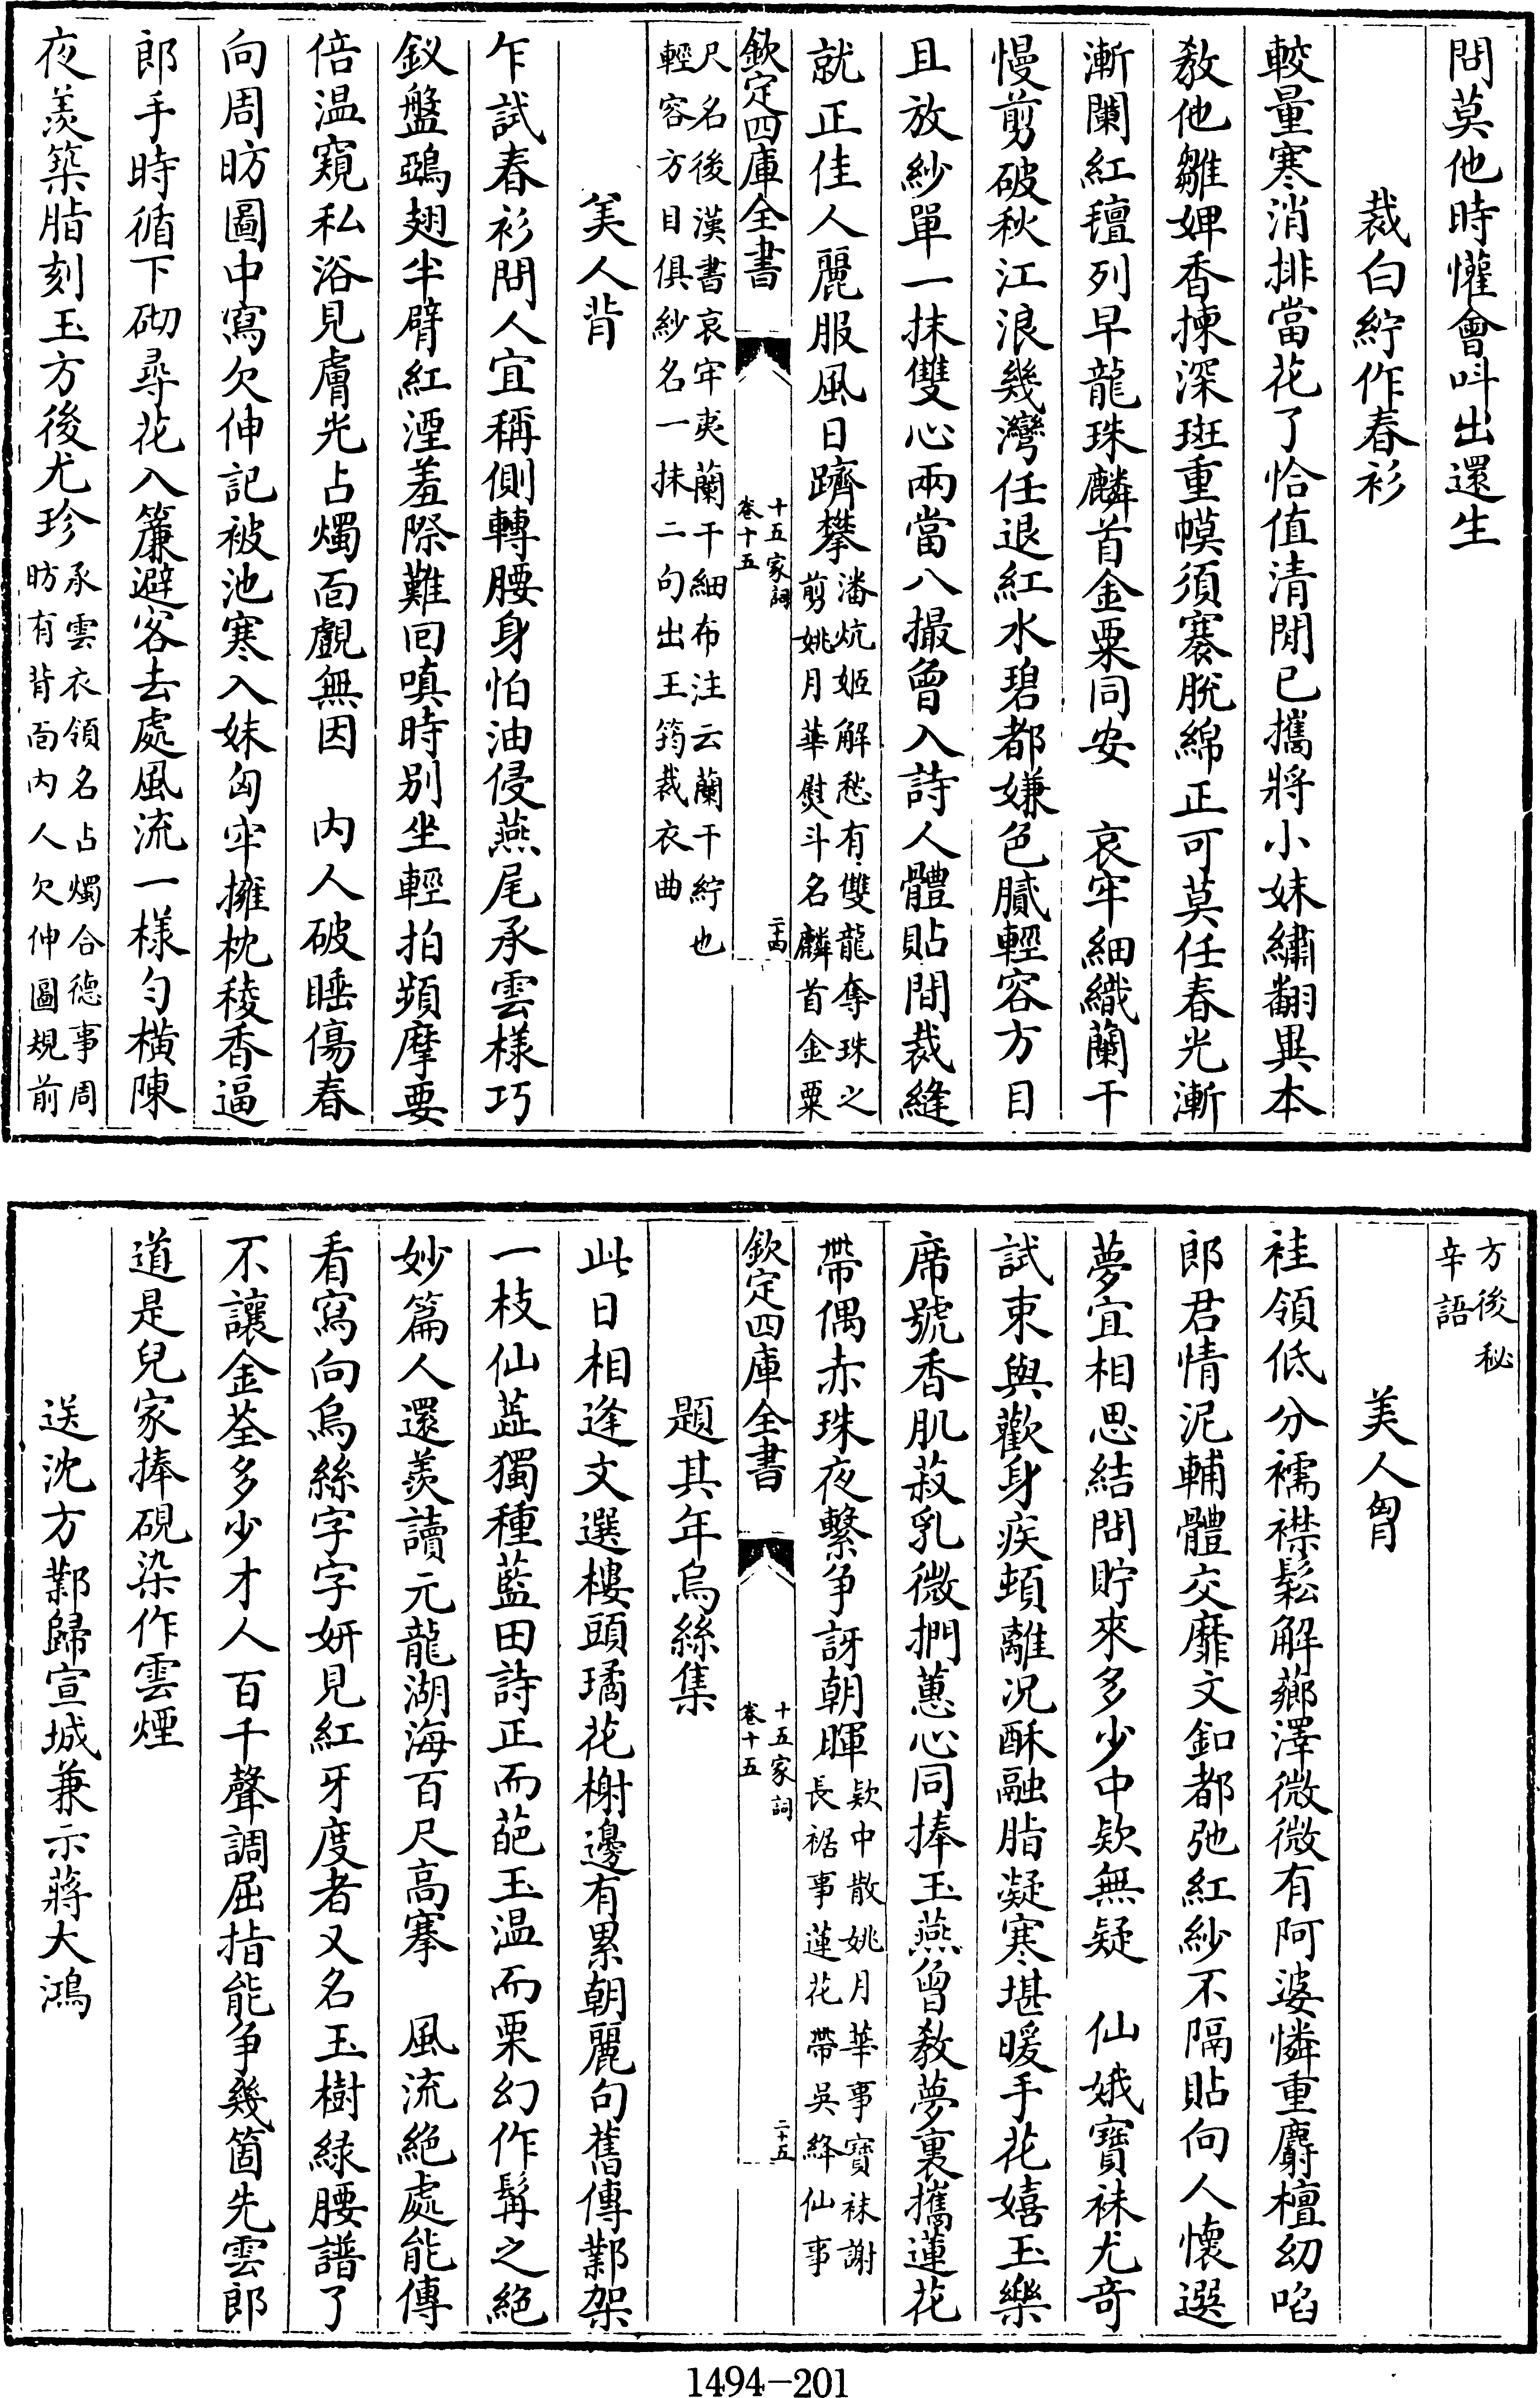 問莫他時懽會呌出還生
裁白紵作春衫
較量寒消排當花了恰值清閒已攜將小妹繡翻異本
敎他雛婢香揀深斑重幙須褰脫綿正可莫任春光漸
漸闌紅氊列早龍珠麟首金粟同安　哀牢細織蘭干
慢剪破秋江浪幾灣任退紅水碧都嫌色膩輕容方目
且放紗單一抹雙心兩當八撮曾入詩人體貼間裁縫
就正佳人麗服風日躋攀潘炕姬解愁有雙龍奪珠之
剪姚月華熨斗名麟首金粟
欽定四庫全書
十五家詞
卷十五
二十四
尺名後漢書哀牢夷蘭干細布注云蘭干紵也
輕容方目俱紗名一抹二句出王筠裁衣曲
美人背
乍試春衫問人宜稱側轉腰身怕油侵燕尾承雲様巧
釵盤鵶翅半臂紅湮羞際難回嗔時别坐輕拍頻摩要
倍温窺私浴見膚光占燭面覰無因　内人破睡傷春
向周昉圖中寫欠伸記被池寒入妹匈牢擁枕稜香逼
郎手時循下砌尋花入簾避客去處風流一様勻橫陳
夜羨築脂刻玉方後尤珍承雲衣領名占燭合德事周
昉有背面内人欠伸圖規前
方後秘
辛語
美人胷
袿領低分襦襟鬆解薌澤微微有阿婆憐重麝檀幼啗
郎君情泥輔體交靡文釦都弛紅紗不隔貼向人懷選
夢宜相思結問貯來多少中欵無疑　仙娥寶袜尤奇
試束與歡身疾頓離况酥融脂凝寒堪暖手花嬉玉樂
席號香肌菽乳微捫蕙心同捧玉燕曾敎夢裏攜蓮花
帶偶赤珠夜繫争訝朝暉欵中散姚月華事寶袜謝
長裾事蓮花帶吳絳仙事
欽定四庫全書
十五家詞
卷十五
二十五
題其年烏絲集
此日相逢文選樓頭璚花榭邊有累朝麗句舊傳鄴架
一枝仙蕋獨種藍田詩正而葩玉温而栗幻作髯之絶
妙篇人還羨讀元龍湖海百尺高搴　風流絶處能傳
看寫向烏絲字字妍見紅牙度者又名玉樹緑腰譜了
不讓金荃多少才人百千聲調屈指能争幾箇先雲郎
道是兒家捧硯染作雲煙
送沈方鄴歸宣城兼示蔣大鴻
1494-201